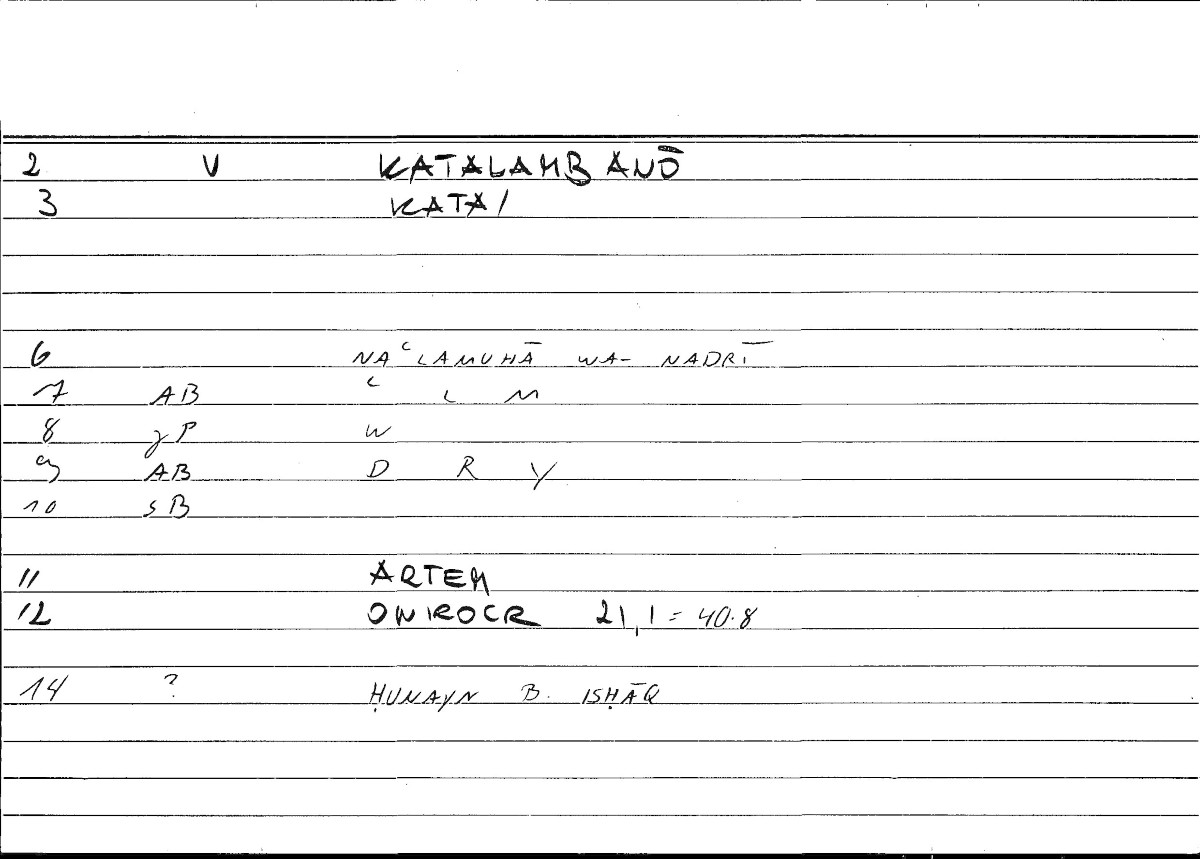 2 V KATALAMBANŌ
3 KATA/
6 NAʿLAMUHĀ WA- NADRĪ
7 AB ʿ L M
8 gP W
9 AB D R Y
10 sB
11 ARTEM
12 ONIROCR 21,1 = 40.8
14 ? ḤUNAYN B. ISḤĀQ